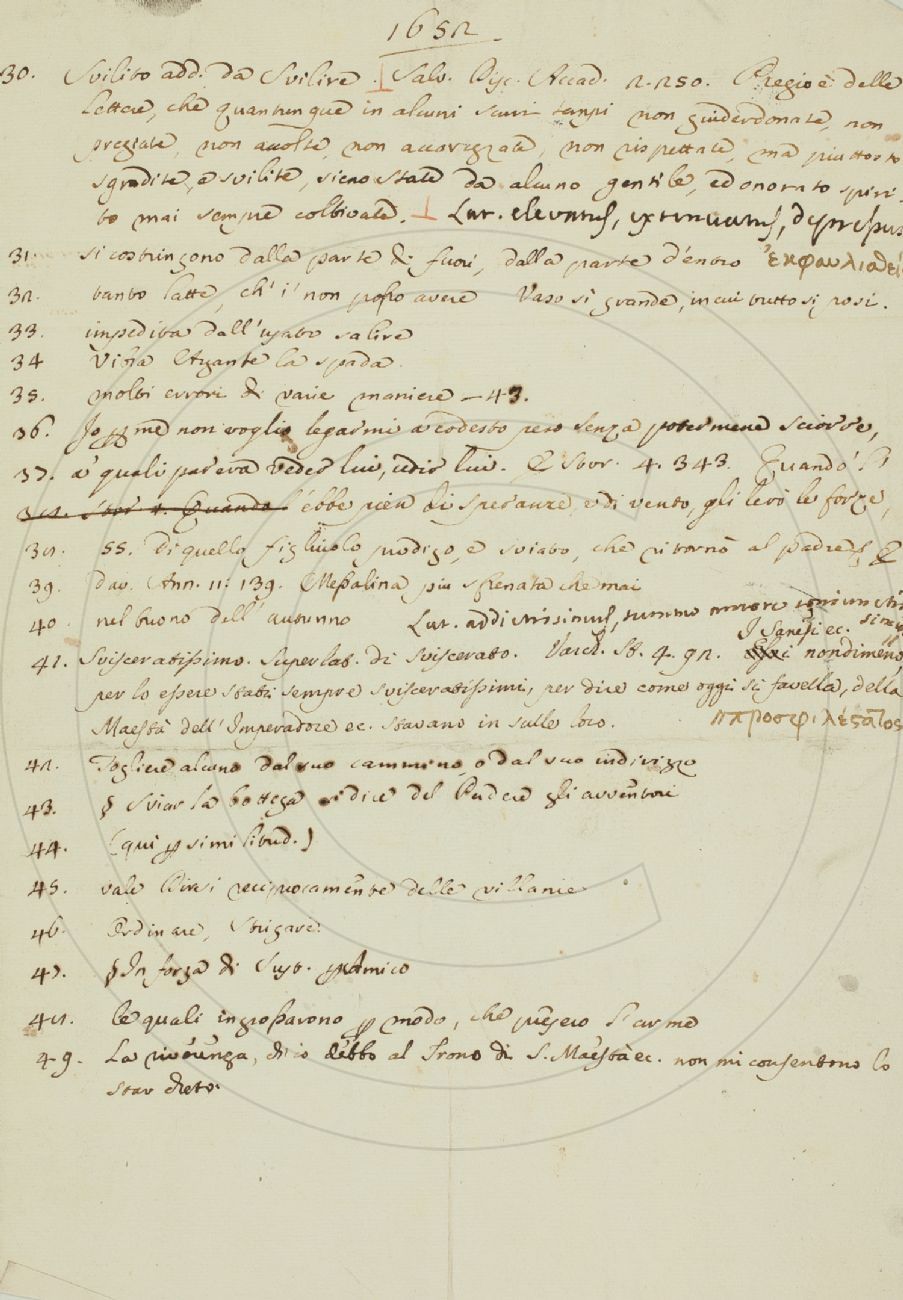 1652
30. Svilito add. da Svilire. ⊥ Salv. Disc. Accad. 2.250. Pregio è delle
lettere, che quantunque in alcuni scuri tempi non guiderdonate, non
pregiate, non accolte, non accarezzate, non rispettate, ma piuttosto
sgradite, e svilite, sieno state da alcuno gentile, ed onorato spiri-
to mai sempre coltivate. ⊥ Lat. elevatus, extenuatus,
31. si costringono dalla parte di fuori, dalla parte d'entro
32. tanto latte, ch'i' non posso avere Vaso sì grande, in cui tutto si posi.
33. impediva dall'usato salire
34 Visia Agante la spada
35. molti errori di varie maniere - 43.
36. Io per me non voglio legarmi a codesto peso senza potermene sciorre,
37. a' quali pareva veder lui, udir lui. E Stor. 4. 343. Quando
l'ebbe pien di speranze, e di vento, gli levò le forze,
38. SS. Di quello figliuolo prodigo, e sviato, che ritornò al padre. E
39. Dav. Ann. 11. 139. Messalina più sfrenata che mai
40. nel buono dell'autunno Lat. addictissimus, summo amore coniunctis
simus
I Sanesi ec.
41. Svisceratissimo. Superlat. di Sviscerato. Varch. St. 4. 92. nondimeno
per lo essere stati sempre svisceratissimi, per dire come oggi si favella, della
Maestà dell'Imperadore ec. stavano in sulle loro. προσφιλέςατος
42. Togliere alcuno dal suo cammino, o dal suo indirizzo
43. § Sviar la bottega si dice del Perdere gli avventori
44. (qui per similitud.)
45. vale Dirsi reciprocamente delle villanie
46. Ordinare, Strigare.
47. § In forza di Sust. per Amico
48. le quali ingrossarono per modo, che presero l'arme
49. La riverenza, ch'io debbo al Trono di S. Maestà ec. non mi consentono lo
star cheto.